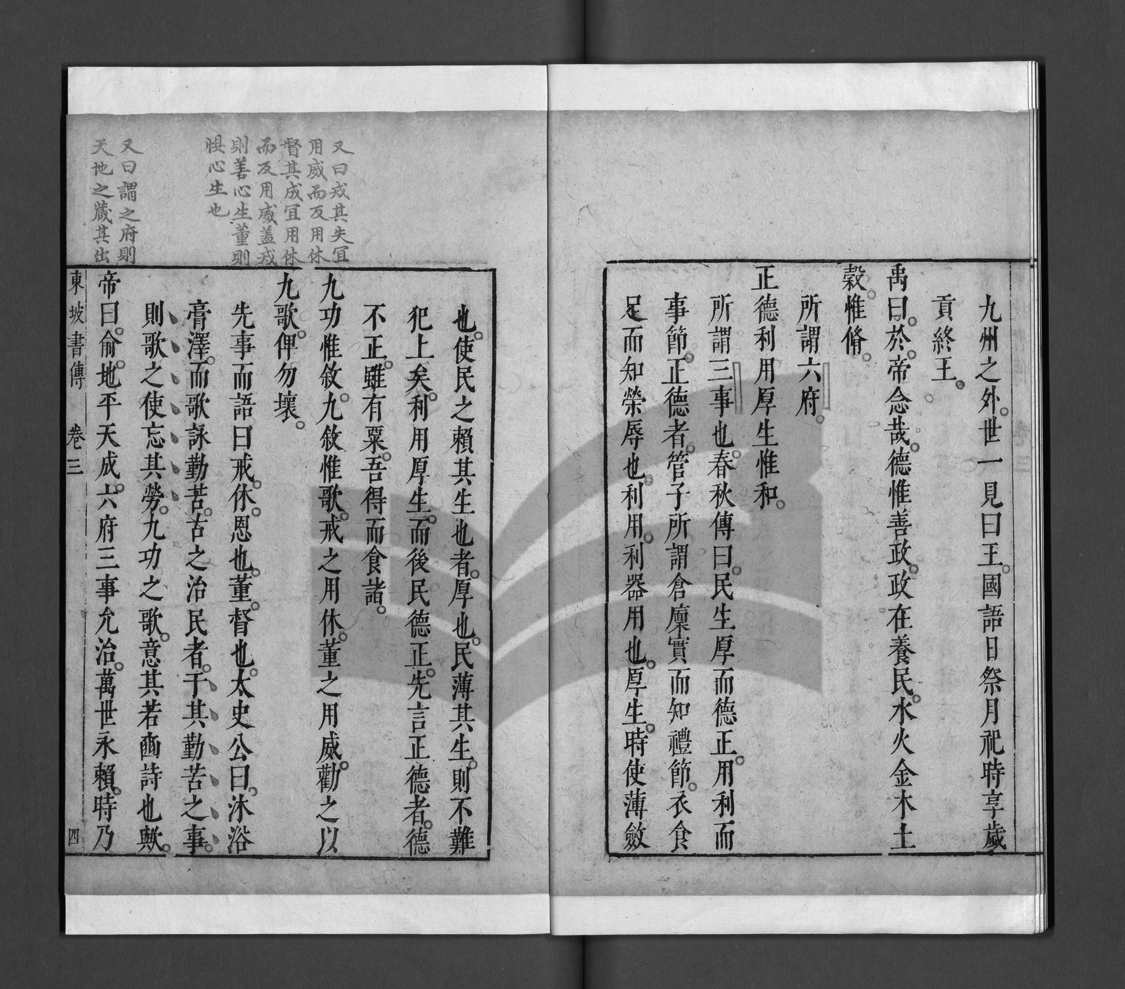 九州之外。世一見曰王。國語日祭月祀時享歲
貢終王。
禹曰。於。帝念哉。德惟善政。政在養民。水火金木土
穀。惟脩。
所謂六府。
正德利用厚生惟和。
所謂三事也。春秋傳曰。民生厚而德正。用利而
事節。正德者。管子所謂倉廩實而知禮節。衣食
足而知榮辱也。利用。利器用也。厚生。時使薄斂
也。使民之賴其生也者。厚也。民薄其生。則不難
犯上矣。利用厚生。而後民德正。先言正德者。德
不正。雖有粟。吾得而食諸。
九功惟敘。九敘惟歌。戒之用休。董之用威。勸之以
九歌。俾勿壞。
先事而語曰戒。休。恩也。董。督也。太史公曰。沐浴
膏澤。而歌詠勤苦。古之治民者。于其勤苦之事。
則歌之使忘其勞。九功之歌。意其若豳詩也歟。
帝曰。俞。地平天成。六府三事允治。萬世永賴。時乃
東坡書傳 卷三 四
又曰戒其失宜
用威而反用休
督其成宜用休
而反用威蓋戒
則善心生董則
懼心生也
又曰謂之府則
天地之藏其出